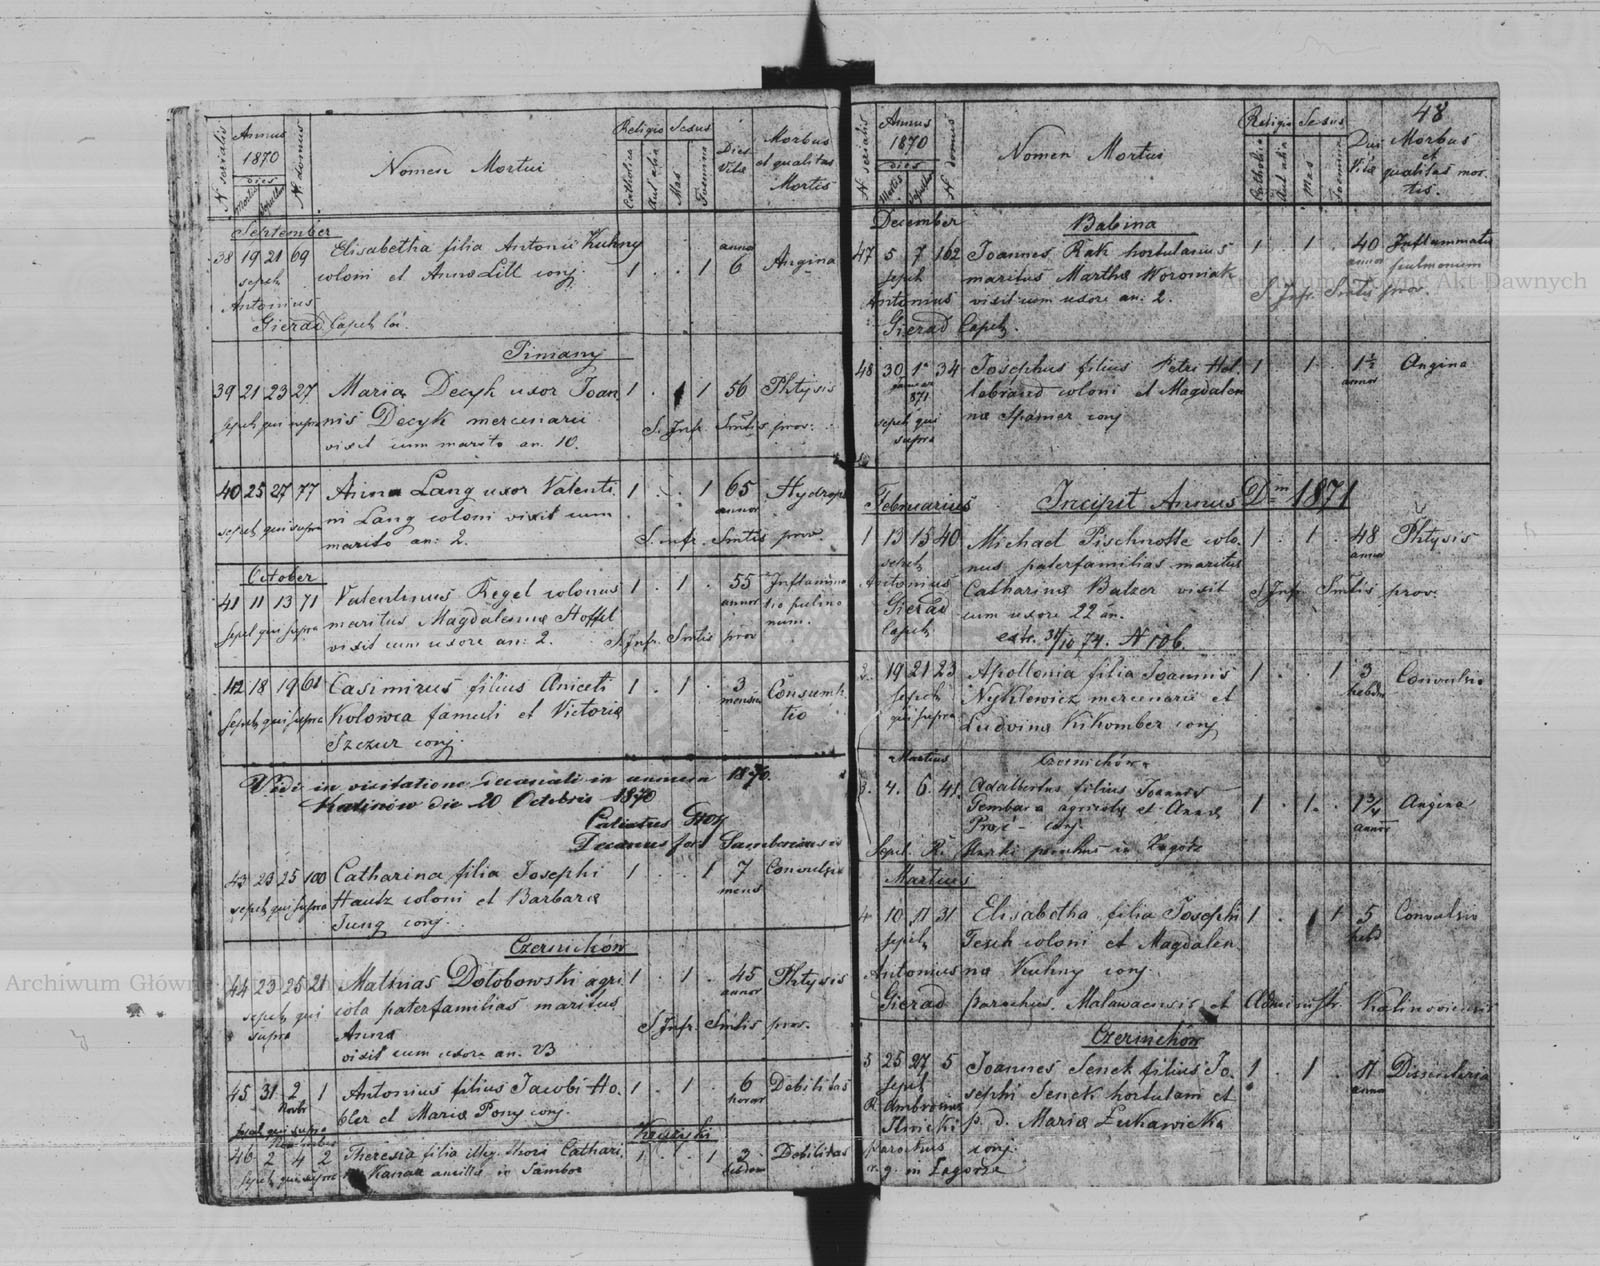 N. serialis
Annus
1870
dies
Mortis
Sepultu
N. domus
Nomen Mortui
Religio
Catholica
Aut alia
Sexus
Mas
Foemina
Dies
Vitæ
Morbus
et qualitas
Mortis
September
38 19 21 69 Elisabetha filia Antonii Kuhny
sepel. coloni et Anna Litt conj. 1 . . 1 anno 6 Angina
Antonius
Gierad Capel. loc.
Piniany
39 21 23 27 Maria Decyk uxor Joan 1 . 1 56 Phtysis
sepel. qui supra nis Decyk mercenarii S. Inf. Smtis prov.
vixit cum marito an. 10.
40 25 27 77 Anna Lang uxor Valenti 1 . . 1 65 Hydrops
sepel. qui supra ni Lang coloni vixit cum annor
marito an: 2. S. inf. Smtis prov.
October
41 11 13 71 Valentinus Regel colonus 1 . 1 . 55 Inflamma
sepel. qui supra maritus Magdalenæ Hoffel annor tio pulmo
vixit cum uxore an: 2. S. Inf. Smtis prov num.
42 18 19 61 Casimirus filius Aniceti 1 . 1 . 3 Consumpt
sepel. qui supra Kolowca famuli et Victoriæ mensiu tio
Szczur conj.
Vidi in visitatione decanali in annum 1870.
Kalinów die 20 Octobris 1870
Decanus for. Samboriensis
43 23 25 100 Catharina filia Josephi 1 . . 1 7 Convulsio
sepel. qui supra Hautz coloni et Barbaræ mens
Jung conj.
Czernichów
44 23 25 21 Mathias Dołobowski agri 1 . 1 . 45 Phtysis
sepel. qui cola paterfamilias maritus annor
supra Anna S. Inf. Smtis prov.
vixit cum uxore an. 23
45 31 2 1 Antonius filius Jacobi Ho. 1 . 1 . 6 Debilitas
Novbr bler et Mariæ Pony conj. horar
sepel. qui supra
Kruzyki
November
46 2 4 2 Theresia filia illeg. thori Cathari. 1 . . 1 2 Debilitas
sepel. qui supra Kanaa ancillæ in Sambor hebdom
48
N. serialis
Annus
1870
dies
Mortis
Sepultu
N. domus
Nomen Mortui
Religio
Catholica
Aut alia
Sexus
Mas
Foemina
Dies
Vitæ
Morbus
et
qualitas mor.
tis.
December
Babina
47 5 7 162 Joannes Rak hortulanus 1 . 1 . 40 Inflammatio
sepel. maritus Marthæ Woroniak annor pulmonum
Antonius vixit cum uxore an: 2. S. Inf. Smtis prov.
Gierad Capel.
48 30 1ª 34 Josephus filius Petri Hil 1 . 1 . 1½ Angina
januar lebrand coloni et Magdalen annor
871 næ Spamer conj
sepel. qui
supra
Februarius
Incipit Annus Dni 1871
1 13 15 40 Michael Pischnotte colo. 1 . 1 . 48 Phtysis
sepel. nus paterfamilias maritus annor
Antonius Catharinæ Balzer vixit S. Inf. Smtis prov.
Gierad cum uxore 22 an.
Capel. extr. 31/10 74. N 106.
2. 19 21 23 Apollonia filia Joannis 1 . . 1 3 Convulsio
sepel. Nyklewicz mercenarii et hebdo
qui supra Ludvinæ Kikomber conj
Martius
Czernichów
3. 4. 6. 41. Adalbertus filius Joannis
Gembara agricolæ et Annæ 1 . 1 . 1¾ Angina
conj. annor
Sepel. parochus in Zagórz
Martius
4 10 11 31 Elisabetha filia Josephi 1 . 1 5 Convulsio
sepel. Tesch coloni et Magdalen hebd
Antonius næ Kuhny conj.
Gierad parochus. Malawacensis et Administr. Kalinoviensis
Czernichów
5 25 27 5 Joannes Senek filius Jo. 1 . 1 . 11 Dissenteria
sepel. sephi Senek hortulani et anno
R. Ambrosius p. d. Mariæ Łukawicka
Ilnicki conj.
parochus
r. g. in Zagórze
Archiwum Główne Akt Dawnych
Archiwum Główne Akt Dawnych